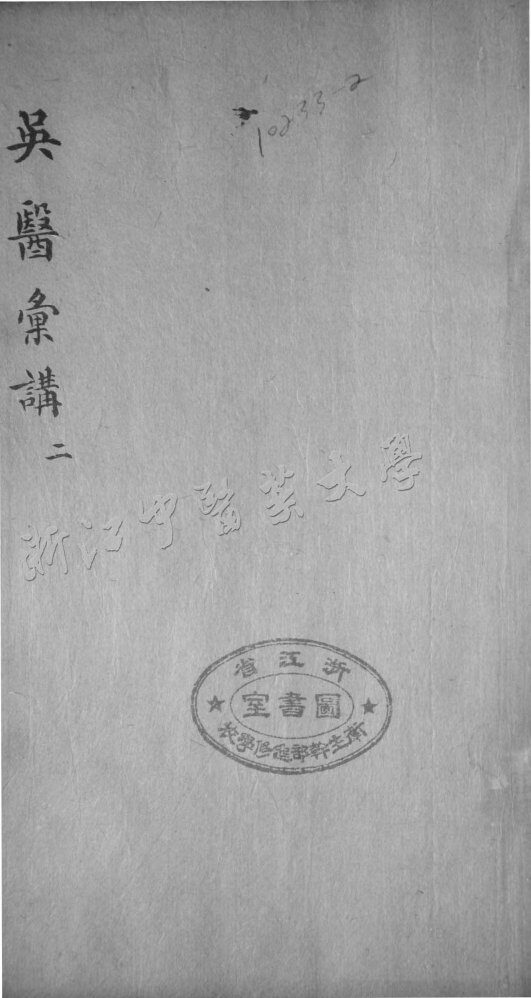 吳醫彙講
二
10233-2
浙江中醫藥大學
浙江省
圖書室
衛生幹部進修學校